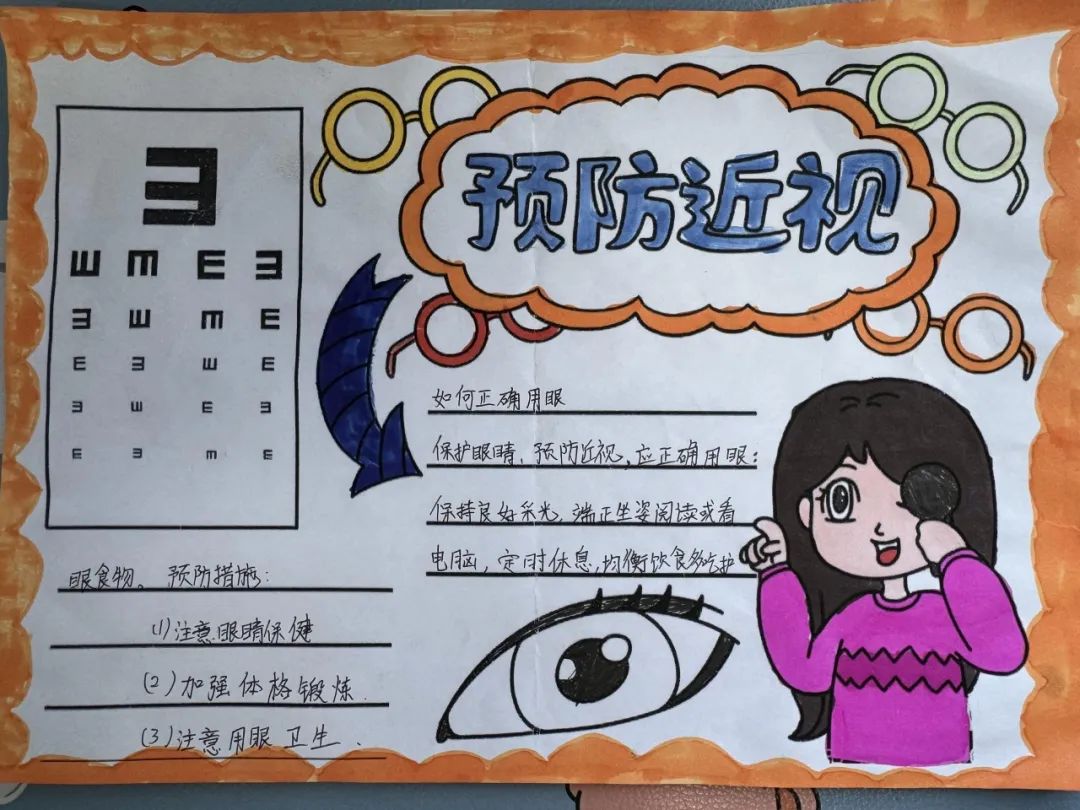 预防近视
如何正确用眼
保护眼睛、预防近视，应正确用眼：
保持良好采光、端正坐姿阅读或看
电脑，定时休息，均衡饮食多吃护
眼食物。 预防措施：
(1)注意眼睛保健
(2)加强体格锻炼.
(3)注意用眼卫生.